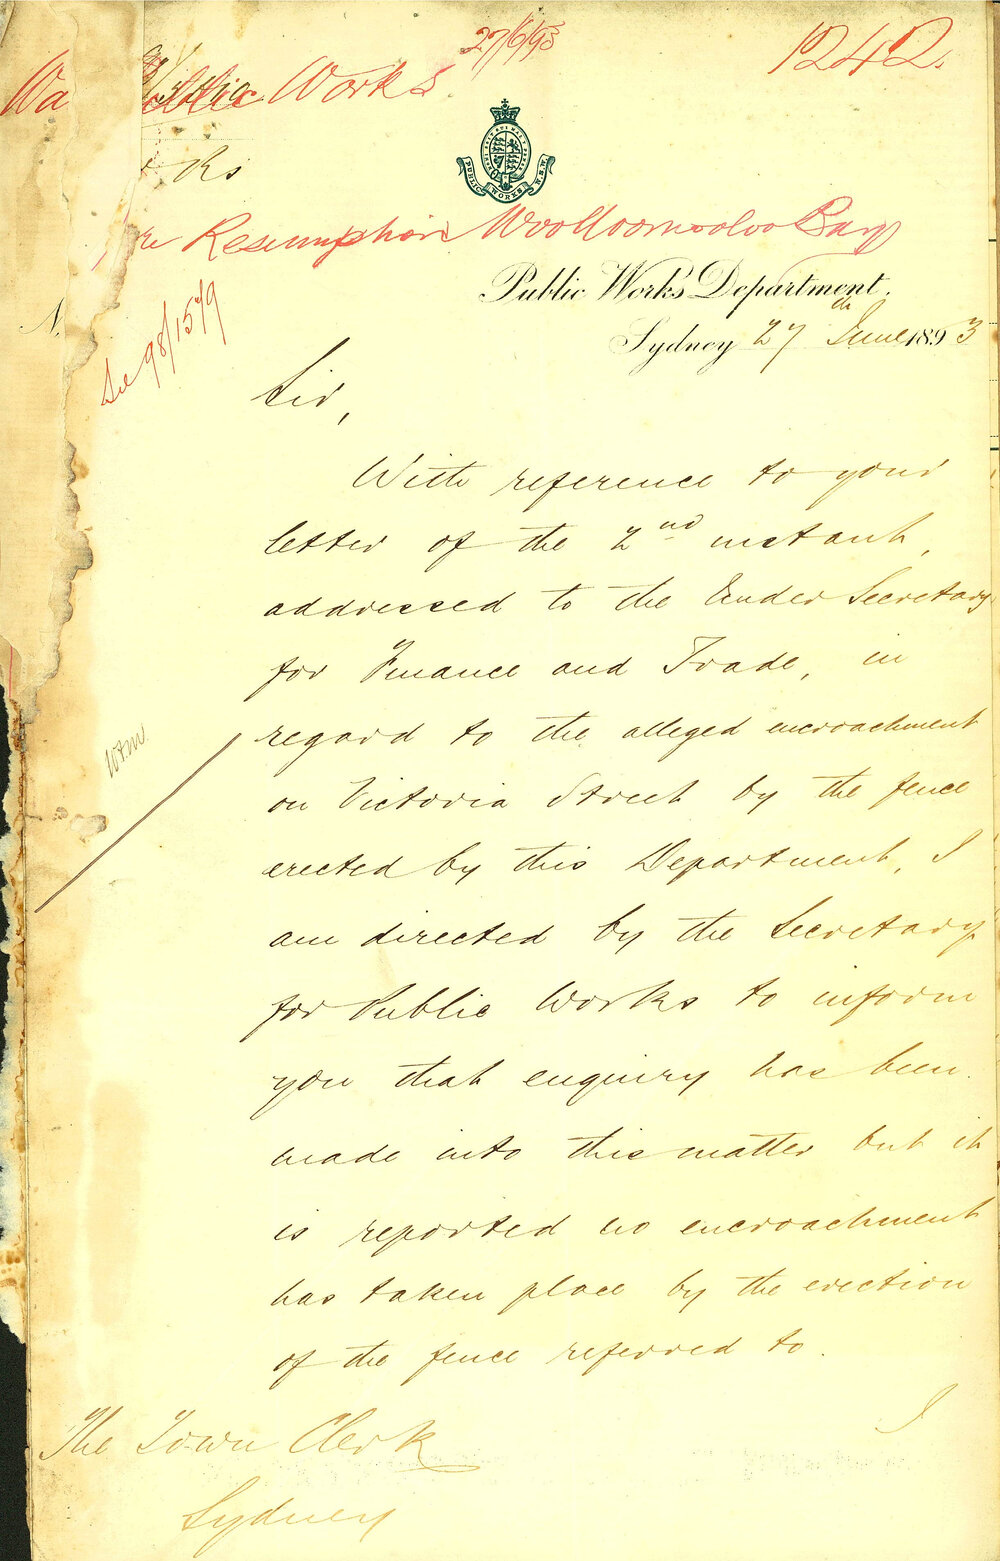 27/6/93
1242.
Public Works
PUBLIC WORKS N.S.W.
re Resumption Woolloomooloo Bay
Public Works Department.
Sydney 27th June 1893
See 98/1579
Sir,
With reference to your
letter of the 2nd instant,
addressed to the Under Secretary
for Finance and Trade, in
regard to the alleged encroachment
on Victoria Street by the fence
erected by this Department, I
am directed by the Secretary
for Public Works to inform
you that enquiry has been
made into this matter but it
is reported no encroachment
has taken place by the erection
of the fence referred to.
I
The Town Clerk
Sydney